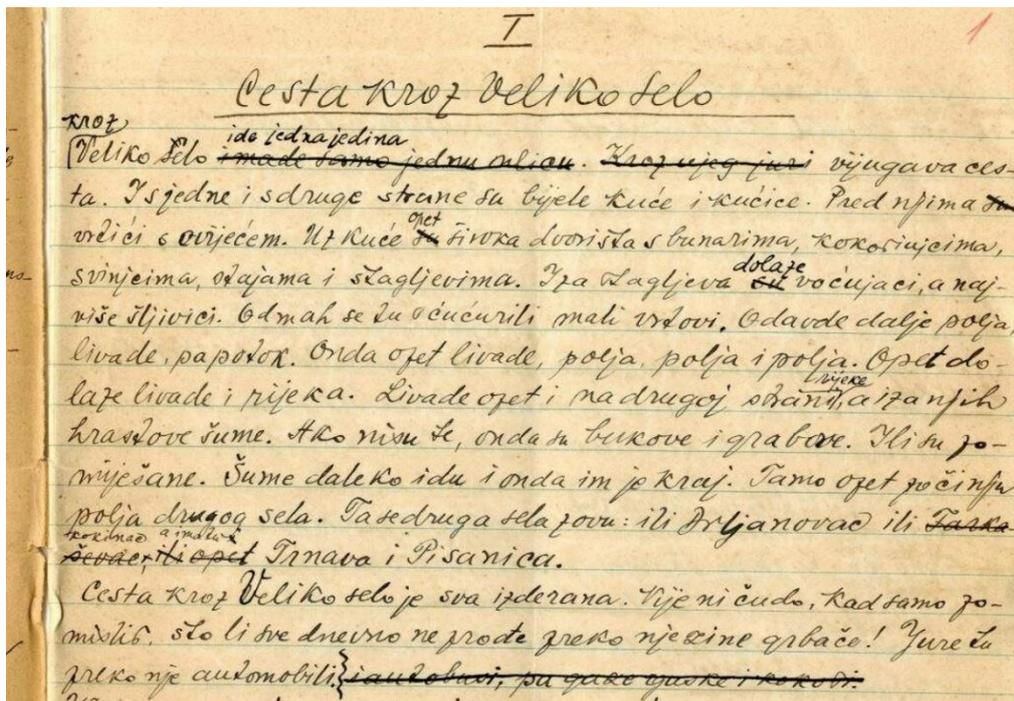 I
1
Cesta kroz Veliko selo
kroz
ide jedna jedina
Veliko selo imade samo jednu ulicu. Kroz njeg juri vijugava ces-
ta. I s jedne i s druge strane su bijele kuće i kućice. Pred njima su
opet
vrtići s cvijećem. Uz kuće su široka dvorišta s bunarima, kokošinjcima,
dolaze
svinjcima, stajama i stagljevima. Iza stagljeva su voćnjaci, a naj-
više šljivici. Odmah se tu šćućurili mali vrtovi. Odavde dalje polja,
livade, pa potok. Onda opet livade, polja, polja i polja. Opet do-
rijeke
laze livade i rijeka. Livade opet i na drugoj strani, a iza njih
hrastove šume. Ako nisu te, onda su bukove i grabove. Ili su po-
miješane. Šume daleko idu i onda im je kraj. Tamo opet počinju
polja drugog sela. Ta se druga sela zovu: ili Drljanovac ili
a imatu
ili opet Trnava i Pisanica.
Cesta kroz Veliko selo je sva izderana. Nije ni čudo, kad samo po-
misliš, što li sve dnevno ne prođe preko njezine grbače! Jure tu
preko nje automobili. i autobusi, pa gaze guske i kokoši.